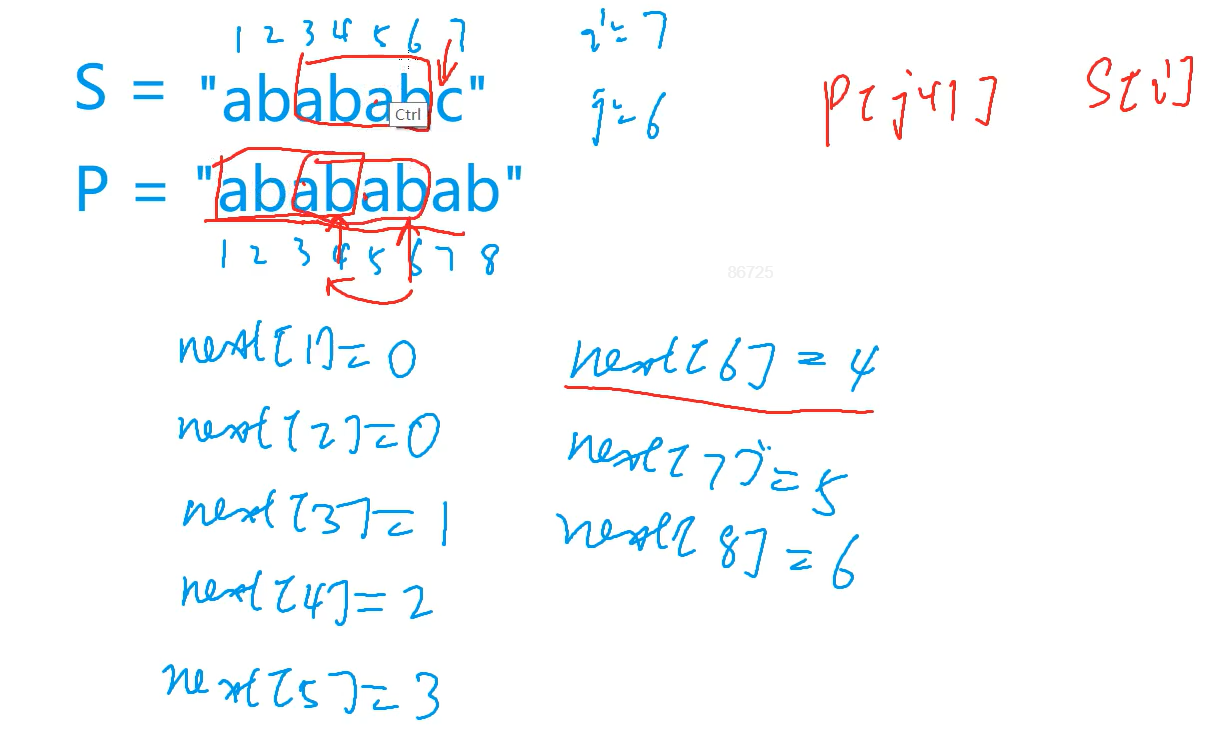 1 2 3 4 5 6 7
S = "abababc"
Ctrl
i = 7
j = 6
P[j+1] S[i]
P = "abababab"
1 2 3 4 5 6 7 8
86725
next[1] = 0
next[2] = 0
next[3] = 1
next[4] = 2
next[5] = 3
next[6] = 4
next[7] = 5
next[8] = 6